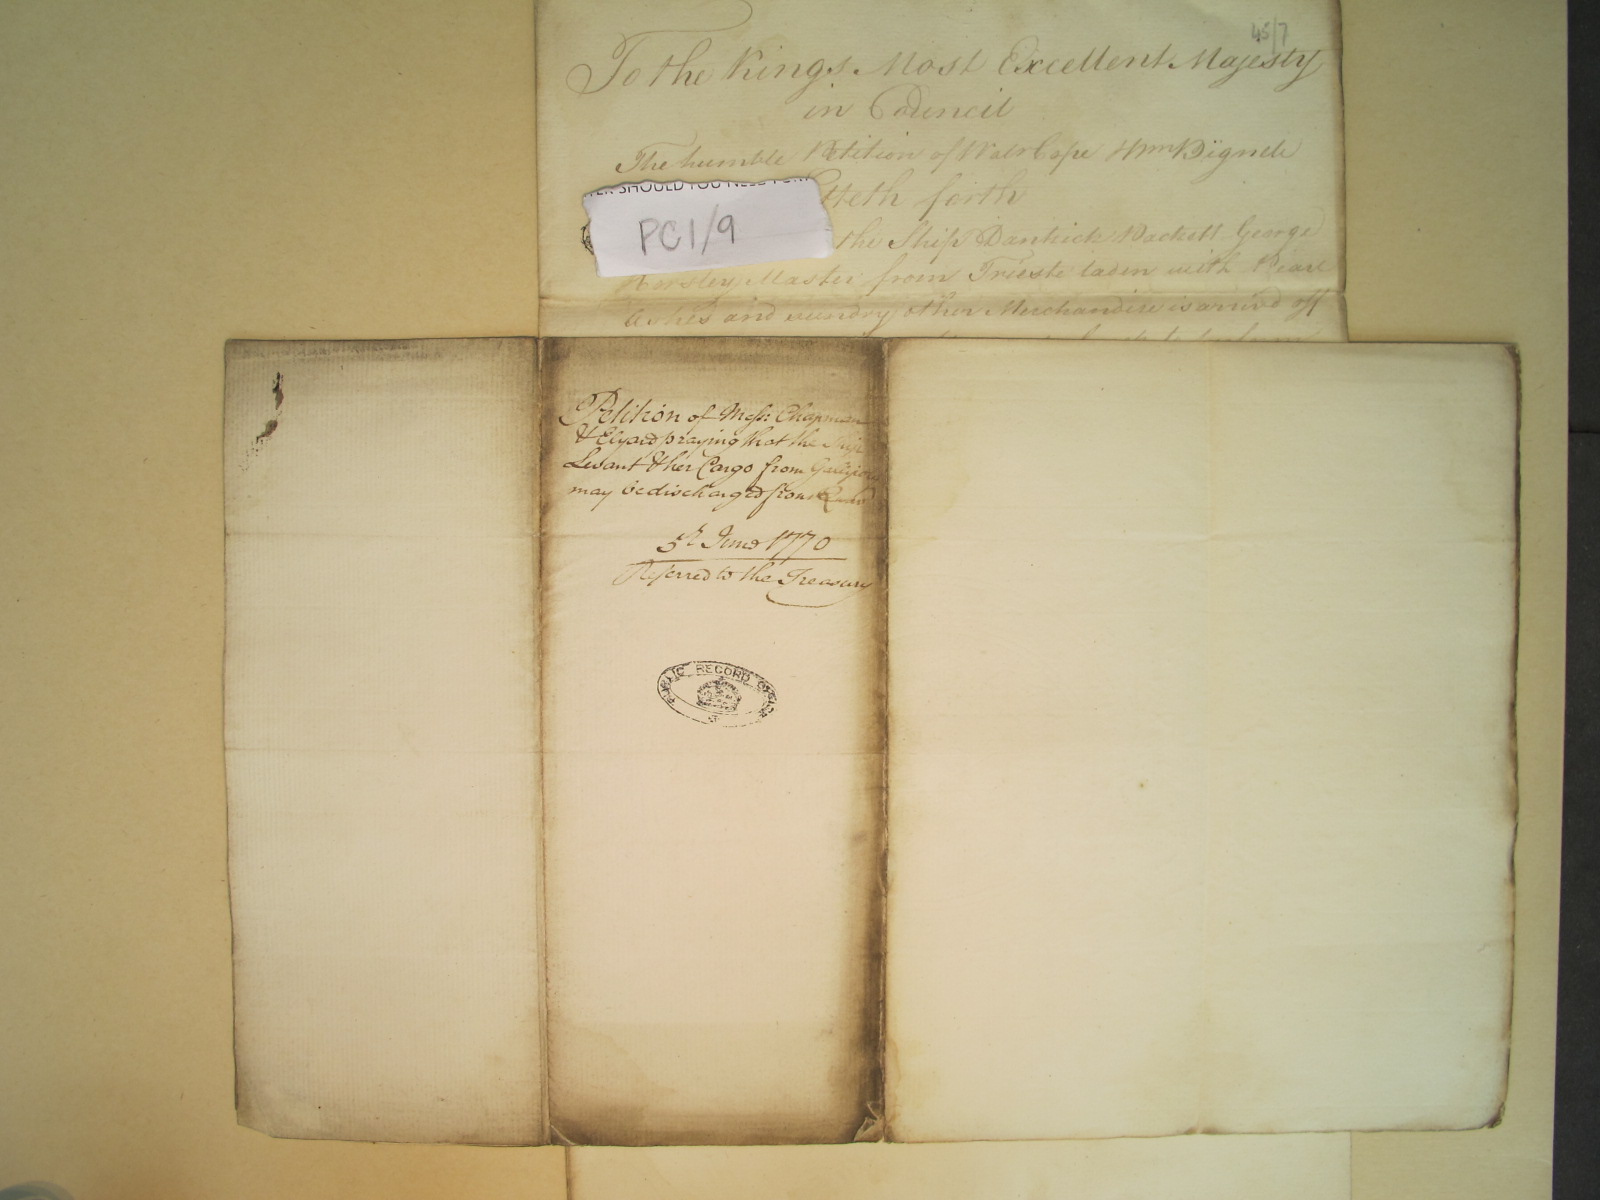 45/7
To the Kings Most Excellent Majesty
in Council
The humble Petition of Walr Cope & Wm Bignell
tteth forth
TER SHOULD YOU NEED
PC1/9
the Ship Dantzick Packett George
Horsley Master from Trieste laden with Pearl
Ashes and sundry other Merchandize is arrived off
Petition of Messrs Chapman
& praying that the Ship
Levant & her Cargo from
may be discharged from
5th June 1770
Referred to the Treasury
PUBLIC RECORD OFFICE